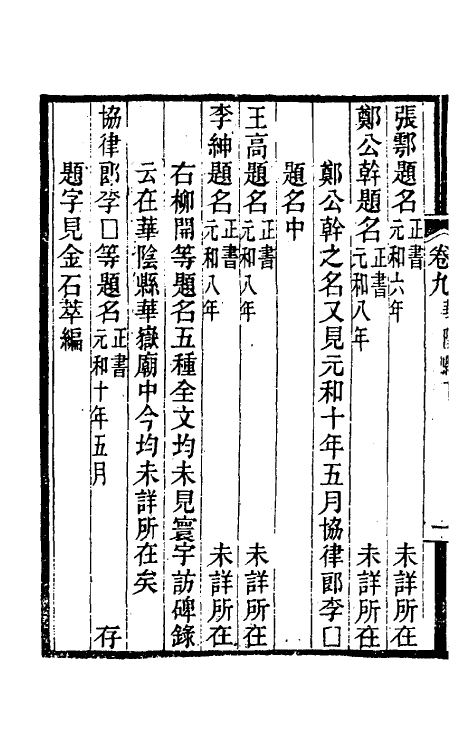 張鄠題名正書元和六年　未詳所在
鄭公幹題名正書元和八年　未詳所在
鄭公幹之名又見元和十年五月協律郎李□
題名中
王高題名正書元和八年　未詳所在
李紳題名正書元和八年　未詳所在
右柳開等題名五種全文均未見寰宇訪碑錄
云在華陰縣華嶽廟中今均未詳所在矣
協律郎李□等題名正書元和十年五月　存
題字見金石萃編
卷九
一